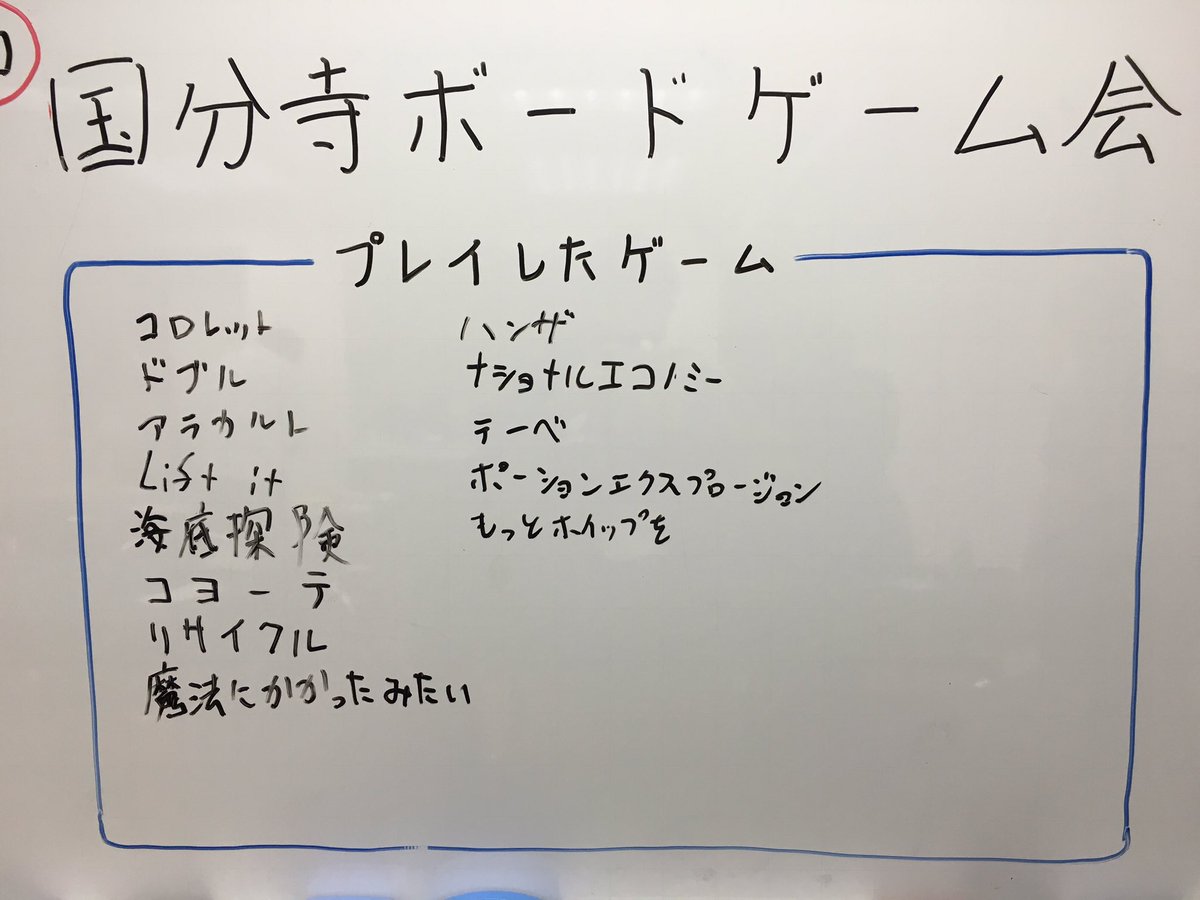 国分寺ボードゲーム会
プレイしたゲーム
コロレット
ドブル
アラカルト
Lift it
海底探険
コヨーテ
リサイクル
魔法にかかったみたい
ハンザ
ナショナルエコノミー
テーベ
ポーションエクスプロージョン
もっとホイップを